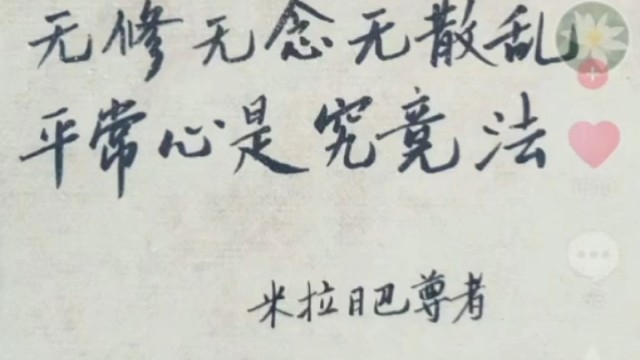 无修无念无散乱
平常心是究竟法
米拉日巴尊者